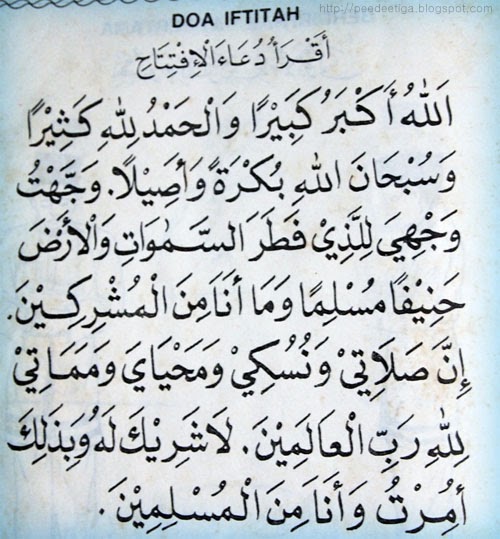 http://peedeetiga.blogspot.com
DOA IFTITAH
أَقْرَأُ دُعَاءَ الْإِفْتِتَاحِ
اَللهُ أَكْبَرُ كَبِيْرًا وَالْحَمْدُ لِلّٰهِ كَثِيْرًا
وَسُبْحَانَ اللهِ بُكْرَةً وَأَصِيْلًا. وَجَّهْتُ
وَجْهِيَ لِلَّذِيْ فَطَرَ السَّمٰوَاتِ وَالْأَرْضَ
حَنِيْفًا مُسْلِمًا وَمَا أَنَا مِنَ الْمُشْرِكِيْنَ.
إِنَّ صَلَاتِيْ وَنُسُكِيْ وَمَحْيَايَ وَمَمَاتِيْ
لِلّٰهِ رَبِّ الْعَالَمِيْنَ. لَا شَرِيْكَ لَهُ وَبِذَلِكَ
أُمِرْتُ وَأَنَا مِنَ الْمُسْلِمِيْنَ.